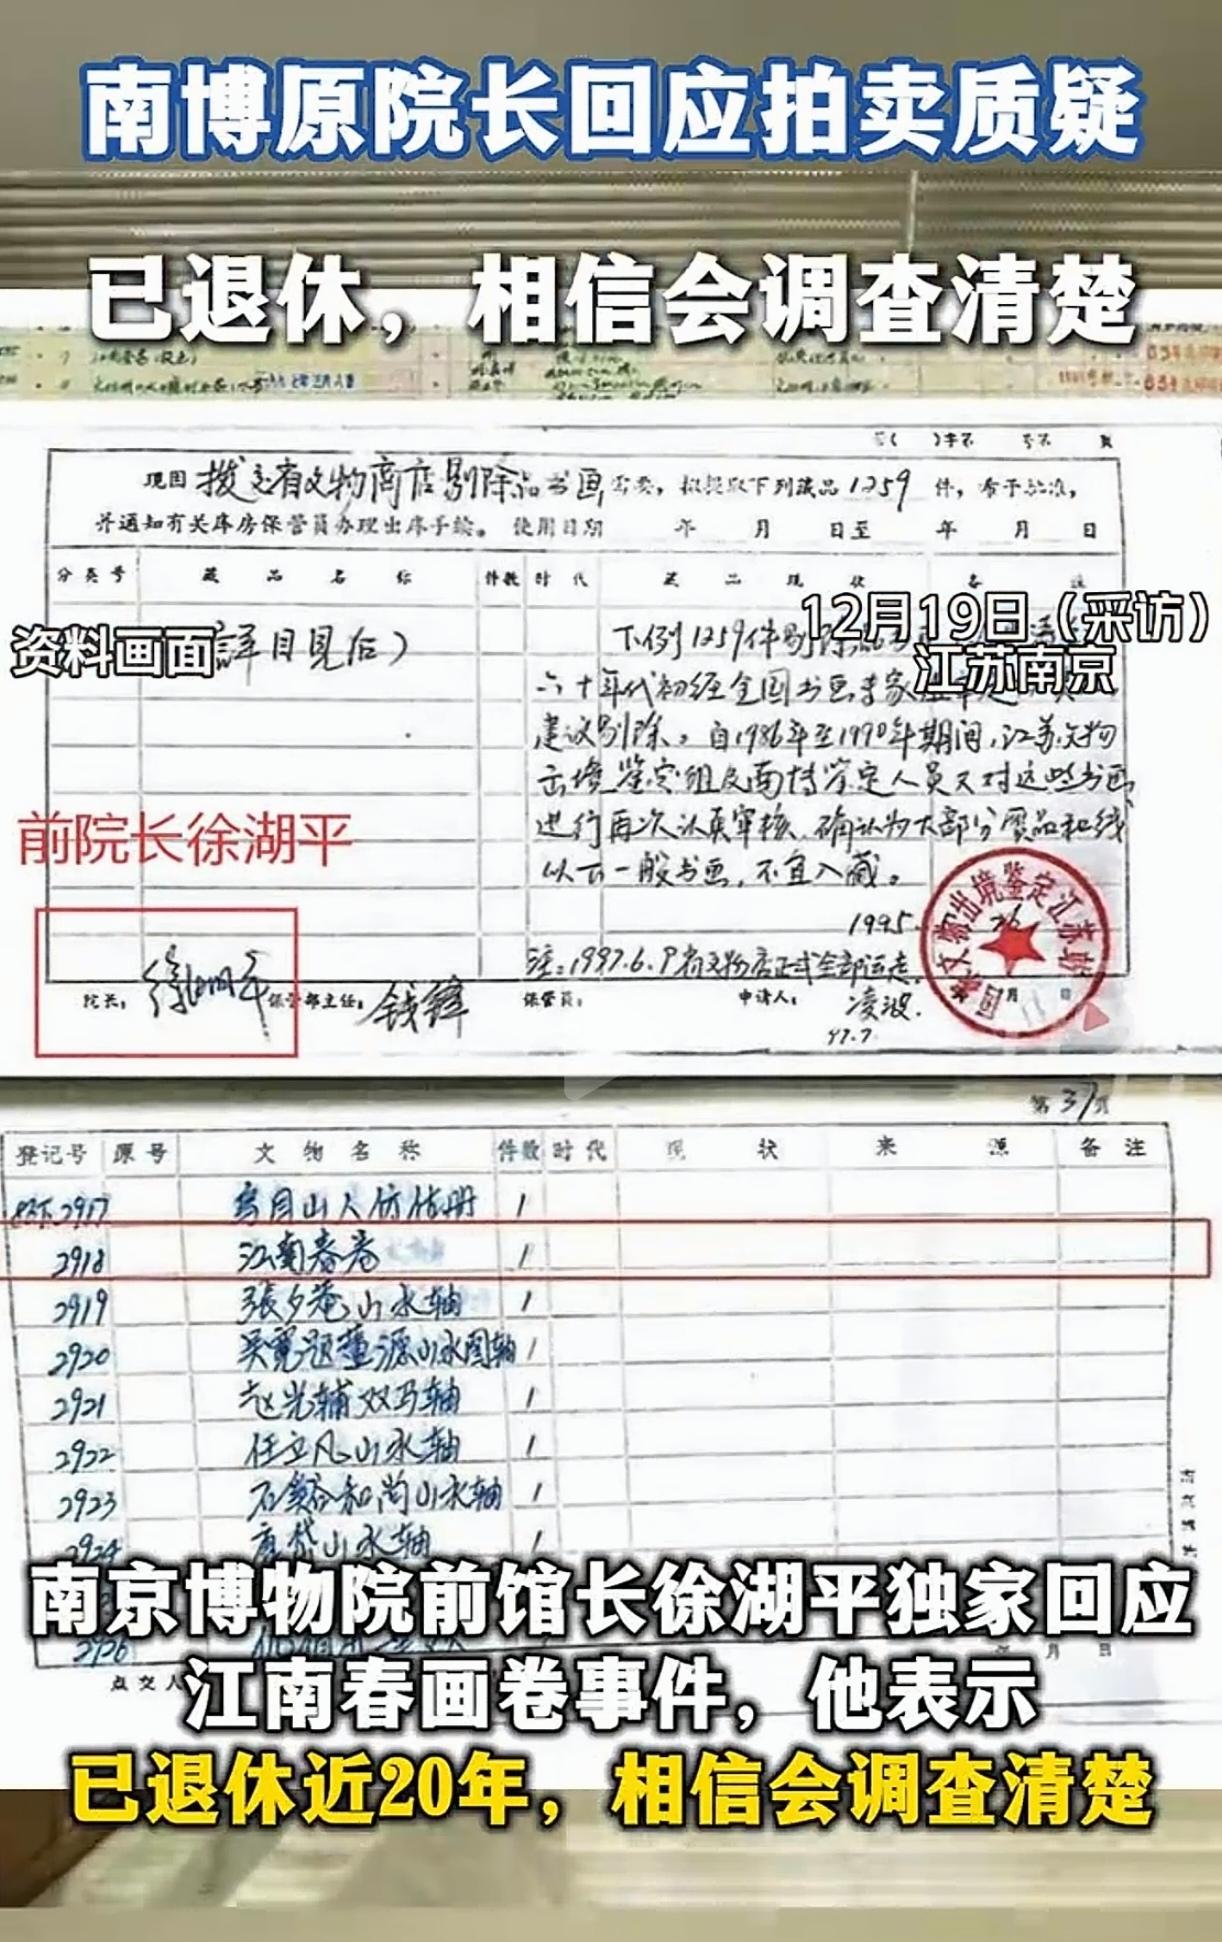 南博原院长回应拍卖质疑
已退休，相信会调查清楚
现因拨交省文物商店剔除品书画需要，拟提取下列藏品1259件，希予批准，
并通知有关库房保管员办理出库手续。 使用日期 年 月 日至 年 月 日
分类号 藏品名称 件数 时代 藏品现状 备注
12月19日（采访）
江苏南京
资料画面
詳目見后）
下例1259件剔除品
六十年代初经全国书画专家
建议剔除。自1986年至1990年期间，江苏文物
出境鉴定组及南博鉴定人员又对这些书画
进行再次认真审核，确认为大部分赝品和线
以下一般书画，不宜入藏。
前院长徐湖平
1995.
注：1997.6.9省文物店正式全部运走。
院长： 徐湖平 保管部主任： 钱锋 保管员： 申请人： 凌波.
97.7.
第37页
登记号 原号 文物名称 件数 时代 现状 来源 备注
2917 1
2918 江南春卷 1
2919 張夕菴山水轴 1
2920 吴寛题董源山水图轴 1
2921 赵光辅双马轴 1
2922 任立凡山水轴 1
2923 石谿和尚山水轴 1
2924 山水轴 1
南京博物院前馆长徐湖平独家回应
2926
年 月 日
点交人
江南春画卷事件，他表示
已退休近20年，相信会调查清楚